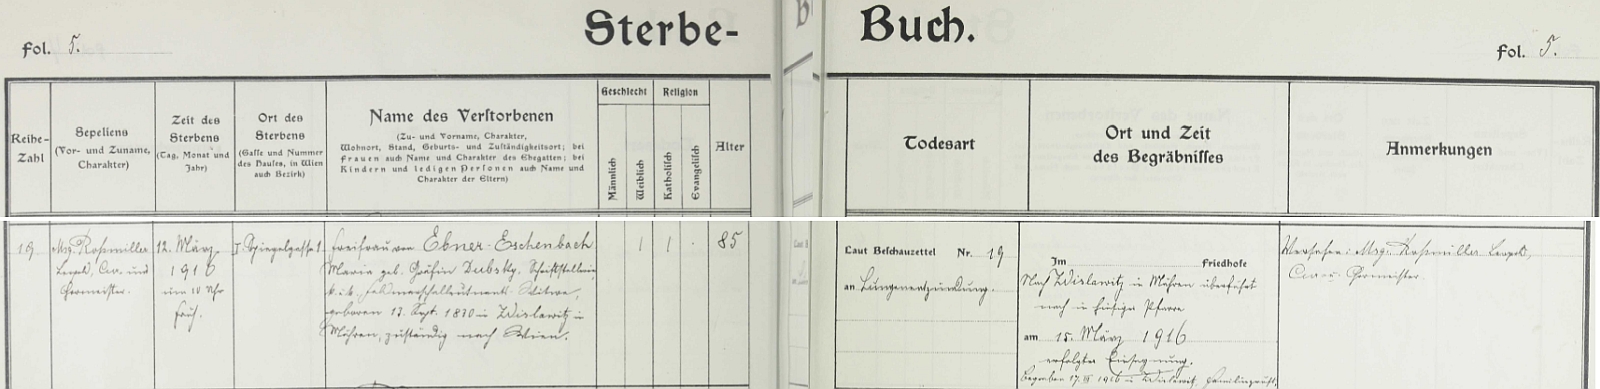 Sterbe-
Buch.
fol. 5.
fol. 5.
Reihe-
Zahl
Sepeliens
(Vor- und Zuname,
Charakter)
Zeit des
Sterbens
(Tag, Monat und
Jahr)
Ort des
Sterbens
(Gasse und Nummer
des Hauses, in Wien
auch Bezirk)
Name des Verstorbenen
(Zu- und Vorname, Charakter,
Wohnort, Stand, Geburts- und Zuständigkeitsort; bei
Frauen auch Name und Charakter des Ehegatten; bei
Kindern und ledigen Personen auch Name und
Charakter der Eltern)
Geschlecht
Männlich
Weiblich
Religion
Katholisch
Evangelisch
Alter
Todesart
Ort und Zeit
des Begräbnisses
Anmerkungen
19.
Msg. Rosmiller
Leopold, Cur. und
12. März
1916
um 10 Uhr
früh.
I Spiegelgasse 1.
Freifrau von Ebner-Eschenbach
Maria geb. Gräfin Dubsky, Schriftstellerin,
k. u. k. Feldmarschalleutnants-Witwe,
geboren 13. Sept. 1830 in Zdislawitz in
Mähren, zuständig nach Wien.
1
1
85
Laut Beschauzettel Nr. 19
an Lungenentzündung.
Im Friedhofe
Nach Zdislawitz in Mähren überführt
nach in hiesiger Pfarre
am 15. März 1916
erfolgter Einsegnung.
Begraben 17. III 1916 in Zdislawitz, Familiengruft.
Versehen: Msg. Rosmiller Leopold,